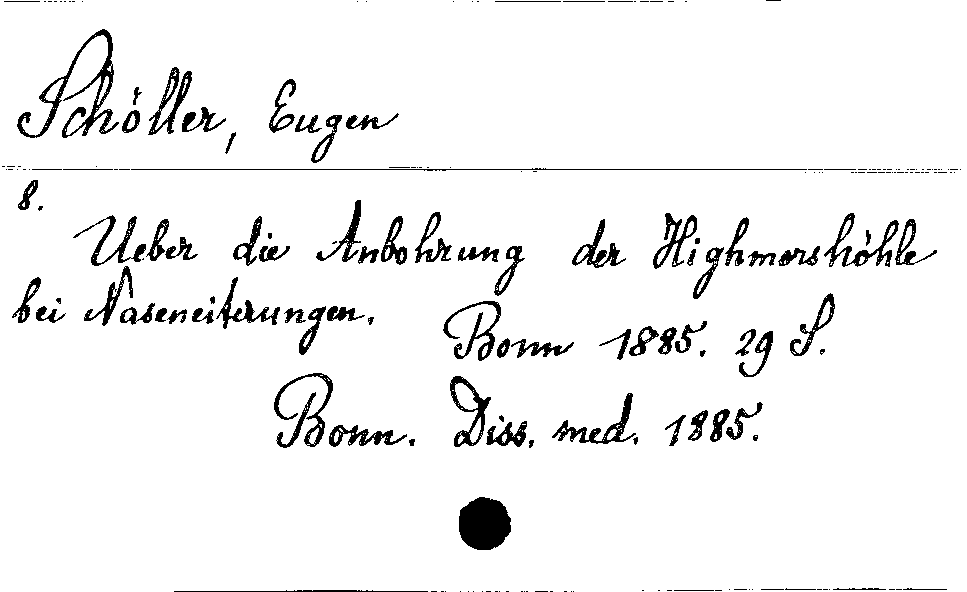 Schöller, Eugen
8.
Ueber die Anbohrung der Highmorshöhle
bei Naseneiterungen.
Bonn 1885. 29 S.
Bonn. Diss. med. 1885.